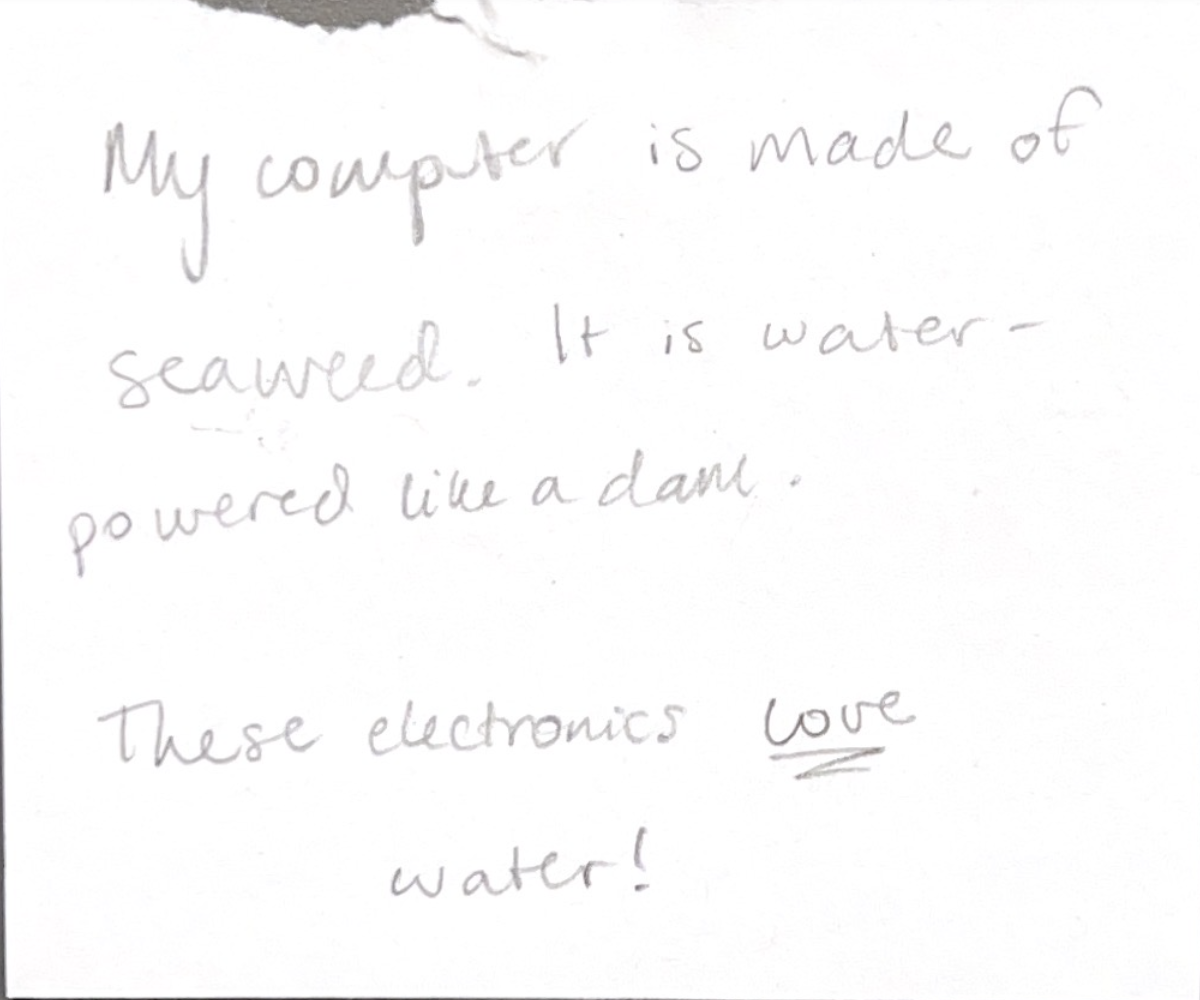 My computer is made of
seaweed. It is water-
powered like a dam.
These electronics love
water!